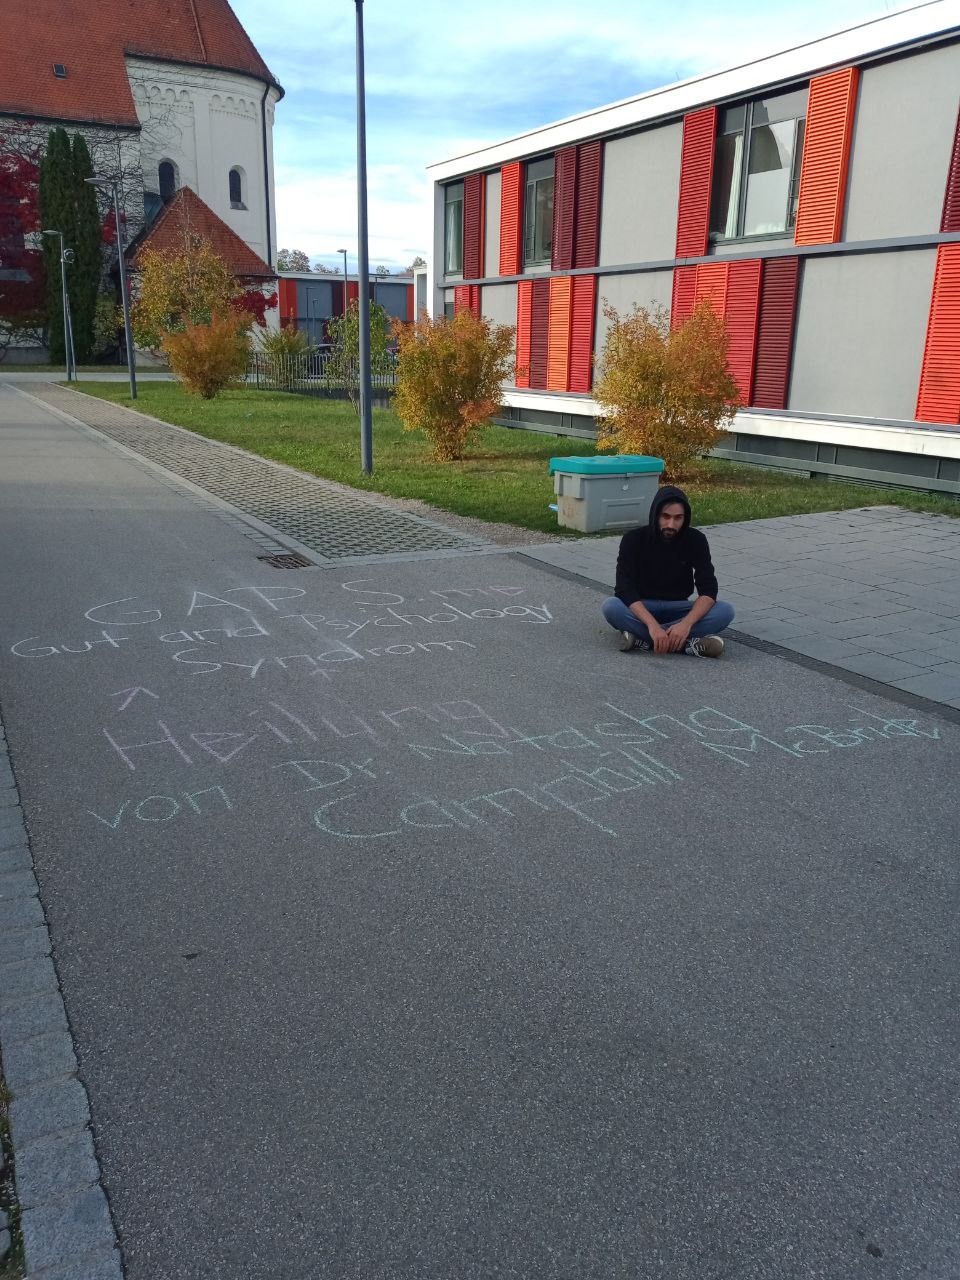 GAPS.me
Gut and Psychology
Syndrom
Heilung
von Dr. Natasha
Campbill McBride